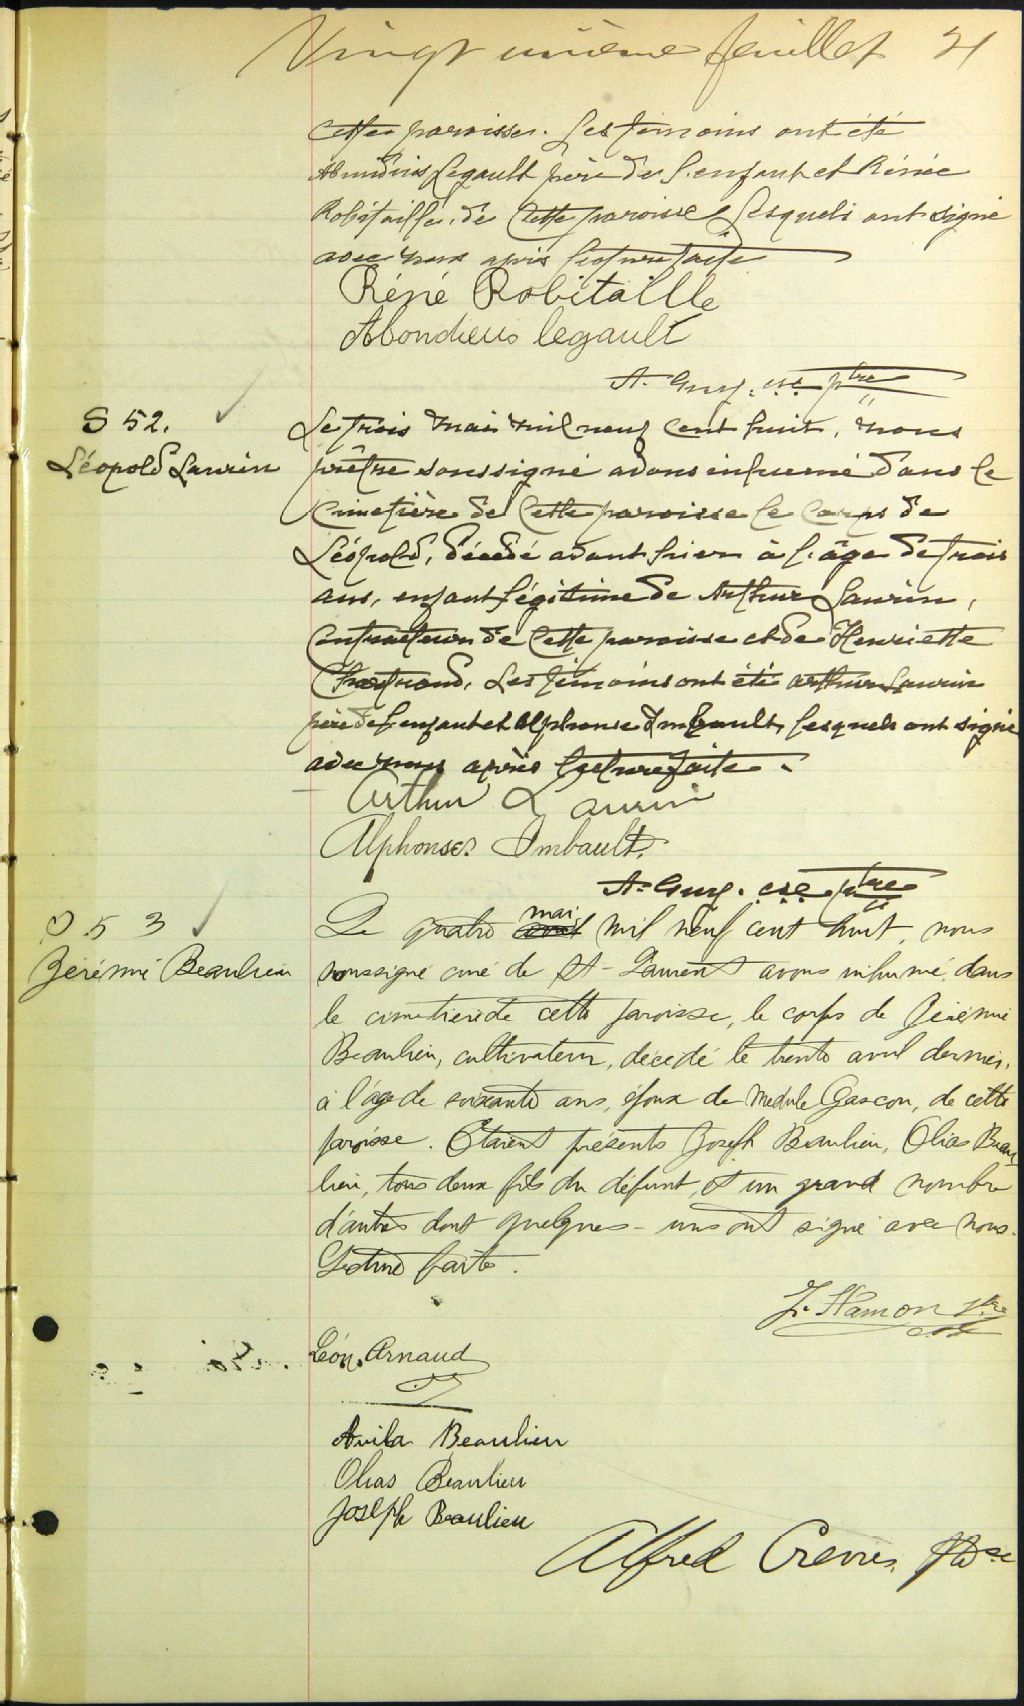 Vingt unième feuillet 21
cette paroisse. Les témoins ont été
Abondius Legault père de l'enfant et Rénée
Robitaille, de cette paroisse lesquels ont signé
avec nous après lecture faite
Réné Robitaille
Abondieus legault
A. Guy. ptre
S 52.
Léopold Laurin
Le trois mai mil neuf cent huit, nous
prêtre soussigné avons inhumé dans le
cimetière de cette paroisse le corps de
Léopold, décédé avant hier à l'âge de trois
ans, enfant légitime de Arthur Laurin,
contracteur de cette paroisse et de Henriette
Chartrand. Les témoins ont été Arthur Laurin
père de l'enfant et Alphonse Imbault, lesquels ont signé
avec nous après lecture faite.
Arthur Laurin
Alphonse Imbault.
A. Guy. ptre
S 53
Jérémie Beaulieu
Le quatre mai mil neuf cent huit, nous
soussigné curé de St-Laurent avons inhumé, dans
le cimetière de cette paroisse, le corps de Jérémie
Beaulieu, cultivateur, décédé le trente avril dernier,
à l'âge de soixante ans, époux de Medule Gascon, de cette
paroisse. Etaient présents Joseph Beaulieu, Olias Beau
lieu, tous deux fils du défunt, et un grand nombre
d'autres dont quelques-uns ont signé avec nous.
Lecture faite.
J. Hamon ptre
Léon Arnaud
Avila Beaulieu
Olias Beaulieu
Joseph Beaulieu
Alfred